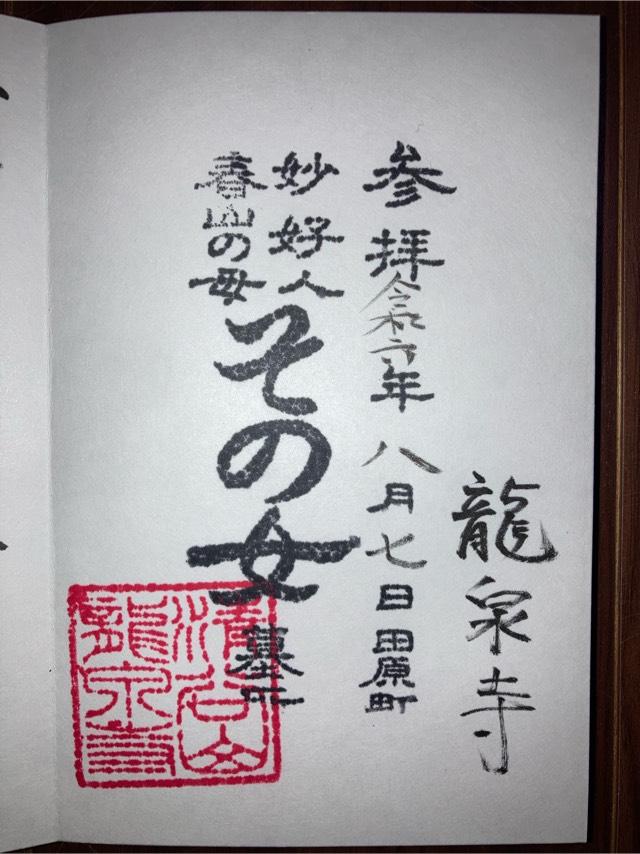 龍泉寺
参拝令和六年八月七日田原町
妙好人
春山の母
その女墓所
清谷山
龍泉寺